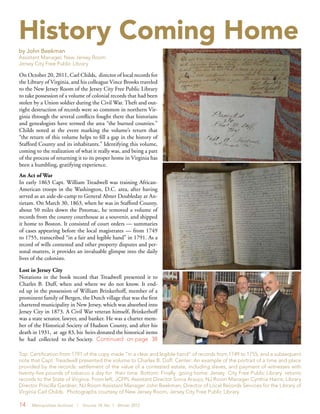 History Coming Home
by John Beekman
Assistant Manager, New Jersey Room
Jersey City Free Public Library
On October 20, 2011, Carl Childs, director of local records for
the Library of Virginia, and his colleague Vince Brooks traveled
to the New Jersey Room of the Jersey City Free Public Library
to take possession of a volume of colonial records that had been
stolen by a Union soldier during the Civil War. Theft and out-
right destruction of records were so common in northern Vir-
ginia through the several conflicts fought there that historians
and genealogists have termed the area "the burned counties."
Childs noted at the event marking the volume's return that
"the return of this volume helps to fill a gap in the history of
Stafford County and its inhabitants." Identifying this volume,
coming to the realization of what it really was, and being a part
of the process of returning it to its proper home in Virginia has
been a humbling, gratifying experience.
An Act of War
In early 1863 Capt. William Treadwell was training African-
American troops in the Washington, D.C. area, after having
served as an aide-de-camp to General Abner Doubleday at An-
tietam. On March 30, 1863, when he was in Stafford County
about 50 miles down the Potomac, he removed a volume of
records from the county courthouse as a souvenir, and shipped
it home to Boston. It consisted of court orders — summaries
of cases appearing before the local magistrates — from 1749
to 1755, transcribed "in a fair and legible hand" in 1791. As a
record of wills contested and other property disputes and per-
sonal matters, it provides an invaluable glimpse into the daily
lives of the colonists.
Lost in Jersey City
Notations in the book record that Treadwell presented it to
Charles B. Duff, when and where we do not know. It end-
ed up in the possession of William Brinkerhoff, member of a
prominent family of Bergen, the Dutch village that was the first
chartered municipality in New Jersey, which was absorbed into
Jersey City in 1873. A Civil War veteran himself, Brinkerhoff
was a state senator, lawyer, and banker. He was a charter mem-
ber of the Historical Society of Hudson County, and after his
death in 1931, at age 83, his heirs donated the historical items
he had collected to the Society. Continued on page 38
Top: Certification from 1791 of the copy made "in a clear and legible hand" of records from 1749 to 1755, and a subsequent
note that Capt. Treadwell presented the volume to Charles B. Duff. Center: An example of the portrait of a time and place
provided by the records: settlement of the value of a contested estate, including slaves, and payment of witnesses with
twenty-five pounds of tobacco a day for their time. Bottom: Finally, going home: Jersey City Free Public Library returns
records to the State of Virginia. From left, JCFPL Assistant Director Sonia Araujo, NJ Room Manager Cynthia Harris, Library
Director Priscilla Gardner, NJ Room Assistant Manager John Beekman, Director of Local Records Services for the Library of
Virginia Carl Childs. Photographs courtesy of New Jersey Room, Jersey City Free Public Library.
14 Metropolitan Archivist | Volume 18 No. 1 Winter 2012